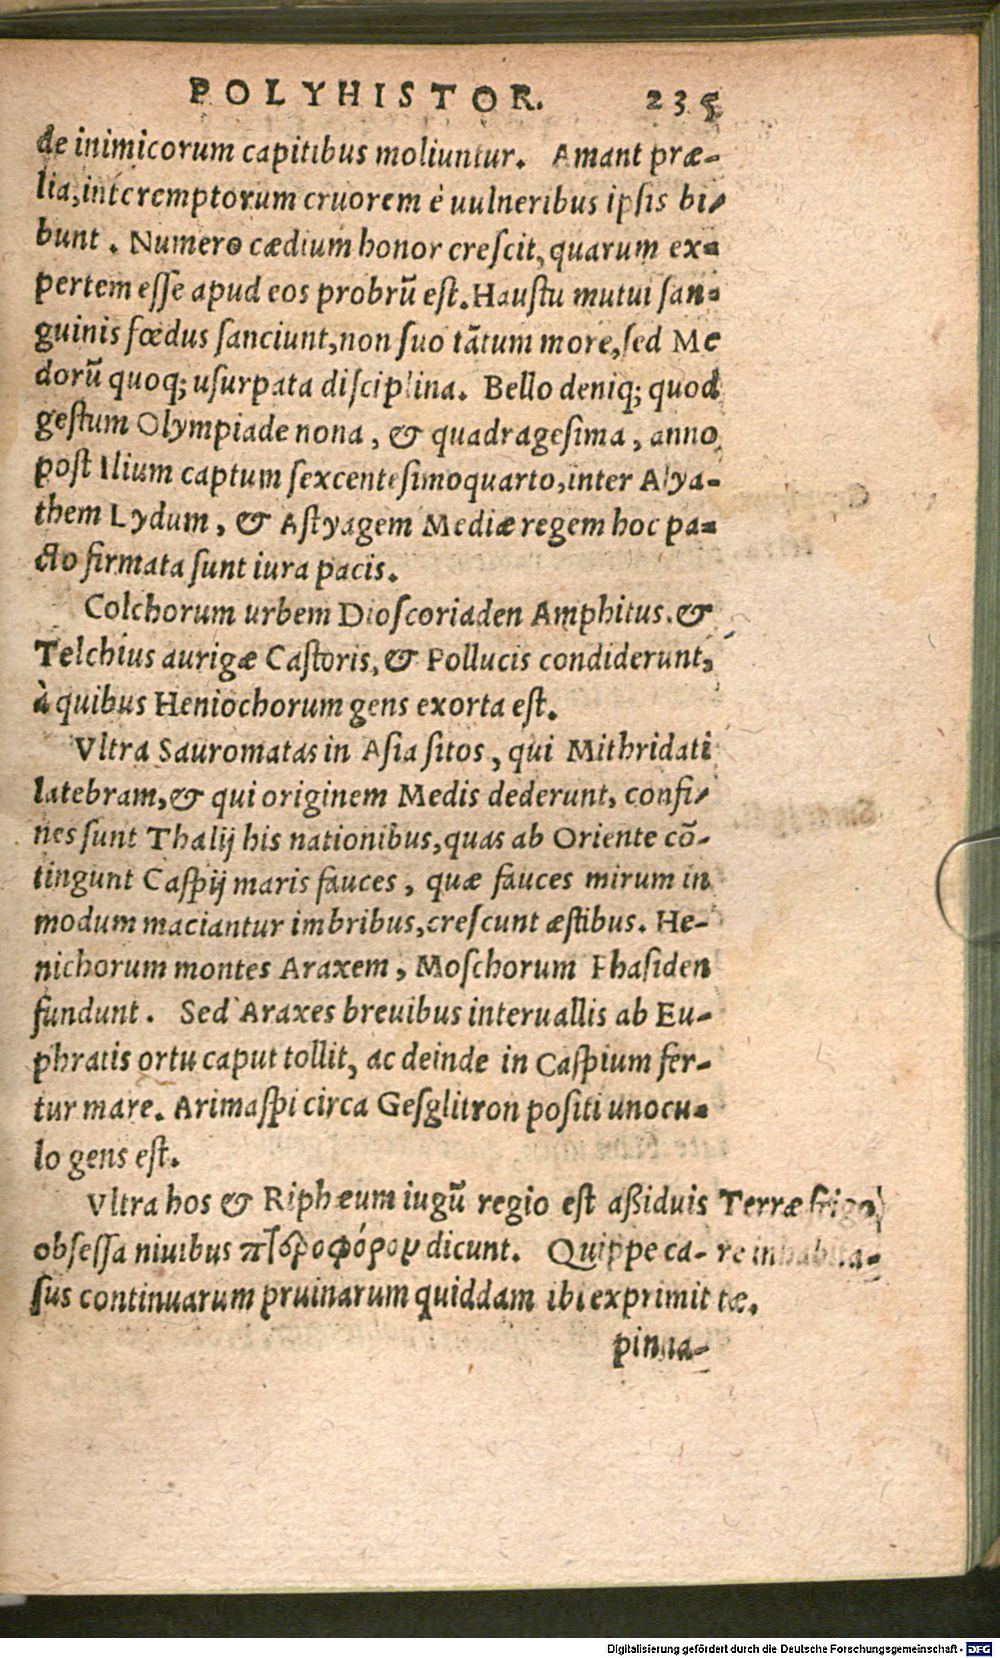 POLYHISTOR. 235
de inimicorum capitibus moliuntur. Amant præ-
lia, interemptorum cruorem è uulneribus ipsis bi-
bunt. Numero cædium honor crescit, quarum ex-
pertem esse apud eos probrũ est. Haustu mutui san-
guinis fœdus sanciunt, non suo tãtum more, sed Me
dorũ quoq; usurpata disciplina. Bello deniq; quod
gestum Olympiade nona, & quadragesima, anno
post Ilium captum sexcentesimoquarto, inter Alya-
them Lydum, & Astyagem Mediæ regem hoc pa-
cto firmata sunt iura pacis.
Colchorum urbem Dioscoriaden Amphitus. &
Telchius aurigæ Castoris, & Pollucis condiderunt,
à quibus Heniochorum gens exorta est.
Vltra Sauromatas in Asia sitos, qui Mithridati
latebram, & qui originem Medis dederunt, confi-
nes sunt Thalij his nationibus, quas ab Oriente cõ-
tingunt Caspij maris fauces, quæ fauces mirum in
modum maciantur imbribus, crescunt æstibus. He-
nichorum montes Araxem, Moschorum Phasiden
fundunt. Sed Araxes breuibus interuallis ab Eu-
phratis ortu caput tollit, ac deinde in Caspium fer-
tur mare. Arimaspi circa Gesglitron positi unocu-
lo gens est.
Vltra hos & Riphæum iugũ regio est aßiduis
obsessa niuibus πτεροφόρον dicunt. Quippe ca-
sus continuarum pruinarum quiddam ibi exprimit
Terræ frigo
re inhabita-
tæ.
pinna-
Digitalisierung gefördert durch die Deutsche Forschungsgemeinschaft - DFG